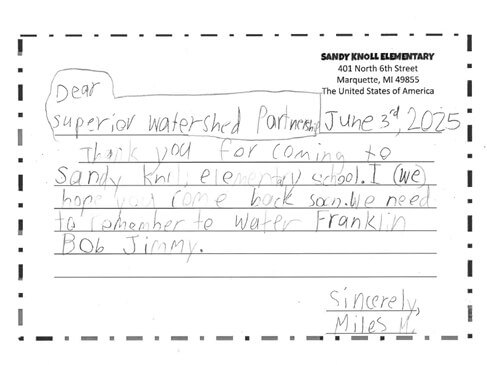 SANDY KNOLL ELEMENTARY
401 North 6th Street
Marquette, MI 49855
The United States of America
Dear
superior watershed Partnership June 3rd, 2025
Thank you for coming to
Sandy knoll elementary school. I (we)
hope you come back soon. We need
to remember to water Franklin
Bob Jimmy.
Sincerely,
Miles M.